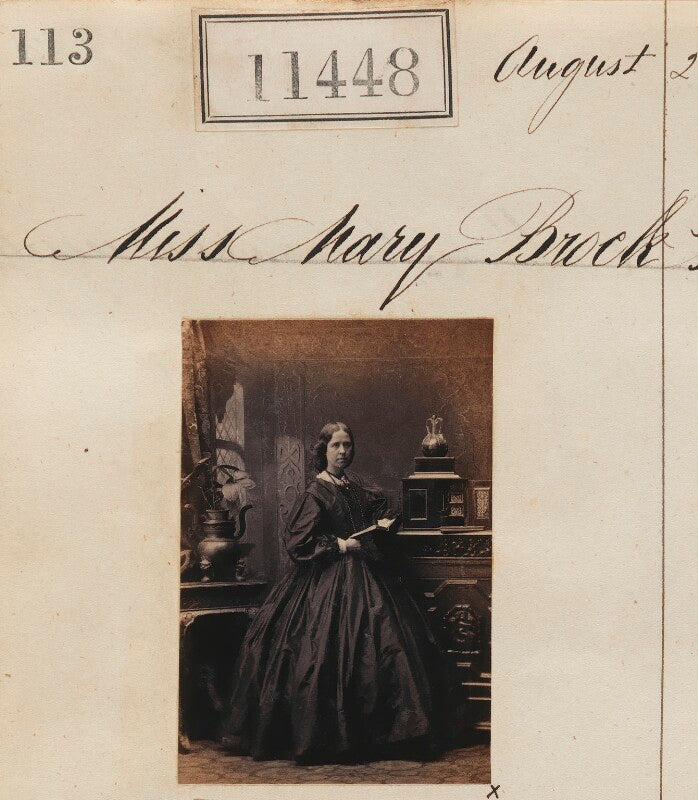 113
11448
August 2
Miss Mary Brock
x